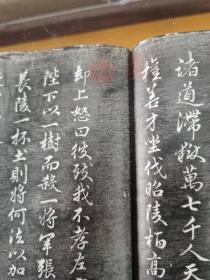 諸道滯獄萬七千人天
權善才坐伐昭陵栢高
却上怒曰彼致我不孝左
陛下以一樹而殺一將軍張
長陵一杯土則將何法以加